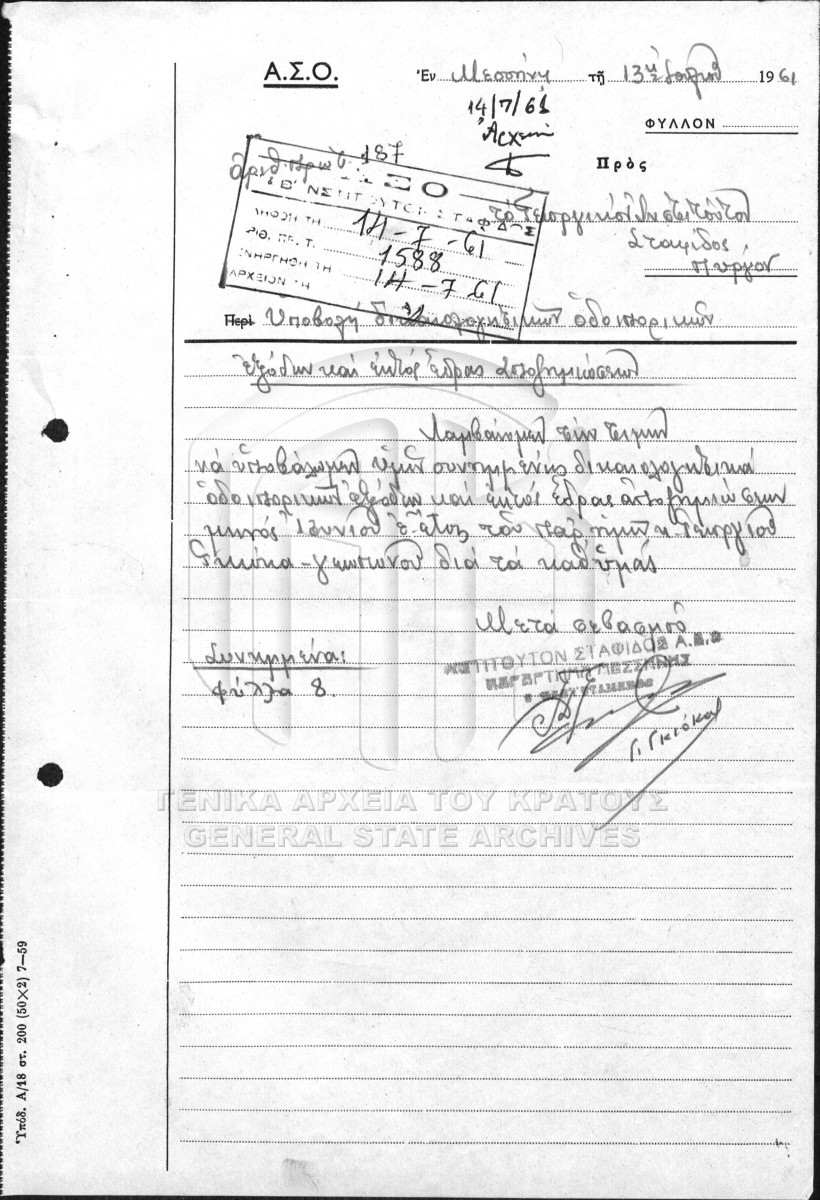 Α.Σ.Ο.
Ἐν Μεσσήνῃ τῇ 13ῃ Ἰουλίου 1961
14/7/61
Ἀρχεῖον
ΦΥΛΛΟΝ
Πρὸς
ἀριθ. πρωτ. 187
ΑΣΟ
Β' ΝΣΤΙΤΟΥΤΟΝ ΣΤΑΦΙΔΟΣ
ΛΗΦΘΗ ΤΗ 14-7-61
ΡΙΘ. ΠΡ. Τ. 1588
ΕΝΗΡΓΗΘΗ ΤΗ 14-7-61
ΑΡΧΕΙΟΝ ΤΗ
τὸ Γεωργικὸν Ἰνστιτοῦτον
Σταφίδος
Πύργον
Περὶ Ὑποβολὴ δικαιολογητικῶν ὁδοιπορικῶν
ἐξόδων καὶ ἐκτὸς ἕδρας ἀποζημιώσεων
Λαμβάνομεν τὴν τιμὴν
νὰ ὑποβάλωμεν ὑμῖν συνημμένως δικαιολογητικὰ
ὁδοιπορικῶν ἐξόδων καὶ ἐκτὸς ἕδρας ἀποζημιώσεων
μηνὸς Ἰουνίου ἐ.ἔτους τοῦ παρ' ἡμῖν κ. Γεωργίου
Γκιόκα - γεωπόνου διὰ τὰ καθ' ὑμᾶς
Μετὰ σεβασμοῦ
ΙΝΣΤΙΤΟΥΤΟΝ ΣΤΑΦΙΔΟΣ Α.Σ.Ο
ΠΑΡΑΡΤΗΜΑ ΜΕΣΣΗΝΗΣ
Ο ΠΡΟΪΣΤΑΜΕΝΟΣ
Συνημμένα:
φύλλα 8.
Γ. Γκιόκας
ΓΕΝΙΚΑ ΑΡΧΕΙΑ ΤΟΥ ΚΡΑΤΟΥΣ
GENERAL STATE ARCHIVES
Ὑπόδ. Α/18 στ. 200 (50×2) 7—59